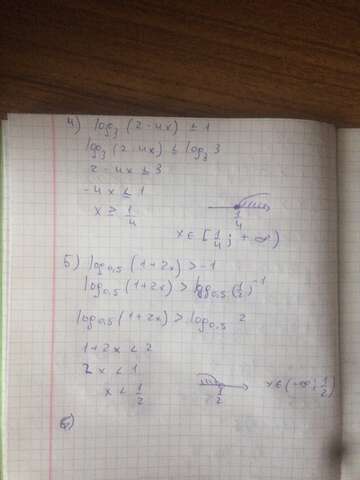 4) log₃(2-4x) ≤ 1
log₃(2-4x) ≤ log₃ 3
2-4x ≤ 3
-4x ≤ 1
x ≥ 1/4
1/4
x ∈ [1/4; +∞)
5) log₀,₅(1+2x) > -1
log₀,₅(1+2x) > log₀,₅(1/2)⁻¹
log₀,₅(1+2x) > log₀,₅ 2
1+2x < 2
2x < 1
x < 1/2
1/2
x ∈ (-∞; 1/2)